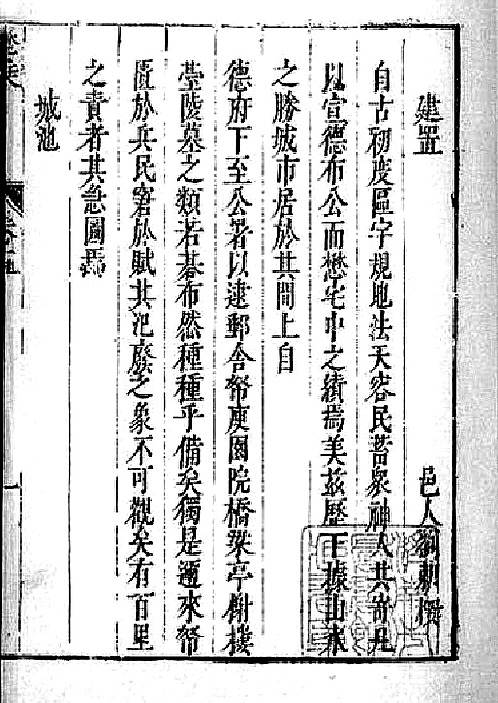 建置
邑人劉 撰
自古初度區宇規地法天容民蓄眾神人共寄凡
以宣德布公而懋宅中之績焉美茲歷下據山水
之勝城市居於其間上自
德府下至公署以逮郵舍帑庾園院橋梁亭榭樓
臺陵墓之類若碁布然種種乎備矣獨是邇來帑
匱於兵民窘於賦其圮廢之象不可觀矣有百里
之責者其急圖焉
城池